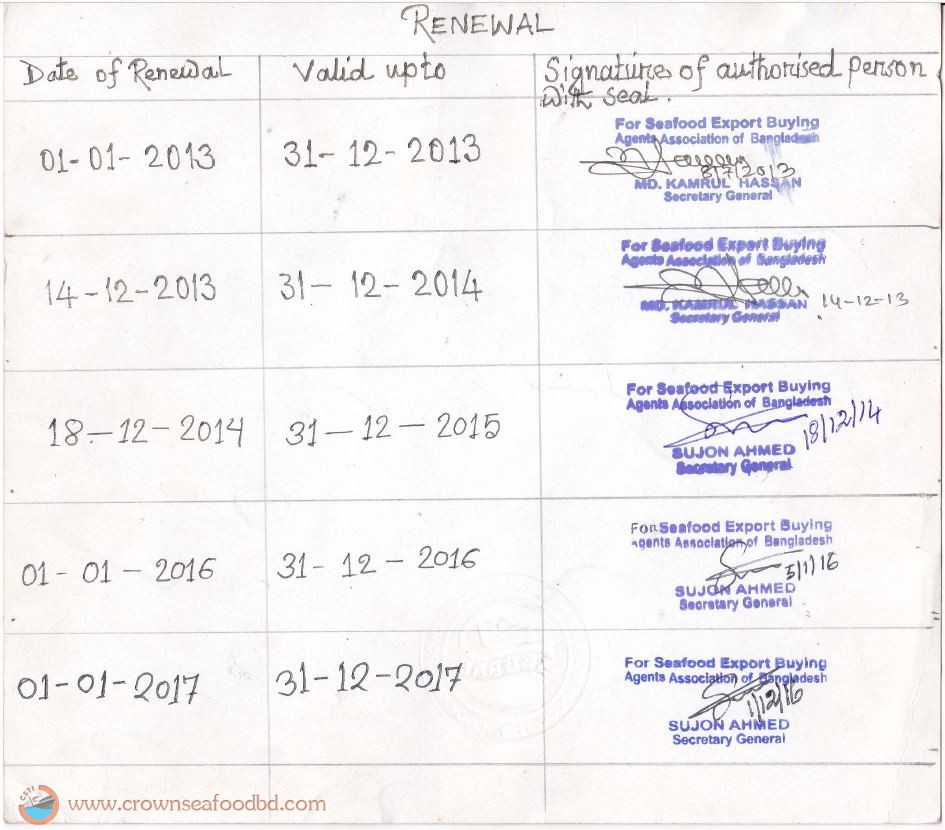 RENEWAL
Date of Renewal
Valid upto
Signature of authorised person
with seal.
01-01-2013
31-12-2013
For Seafood Export Buying
Agents Association of Bangladesh
8/7/2013
MD. KAMRUL HASSAN
Secretary General
14-12-2013
31-12-2014
For Seafood Export Buying
Agents Association of Bangladesh
MD. KAMRUL HASSAN 14-12-13
Secretary General
18-12-2014
31-12-2015
For Seafood Export Buying
Agents Association of Bangladesh
18/12/14
SUJON AHMED
Secretary General
01-01-2016
31-12-2016
For Seafood Export Buying
Agents Association of Bangladesh
5/1/16
SUJON AHMED
Secretary General
01-01-2017
31-12-2017
For Seafood Export Buying
Agents Association of Bangladesh
1/12/16
SUJON AHMED
Secretary General
www.crownseafoodbd.com